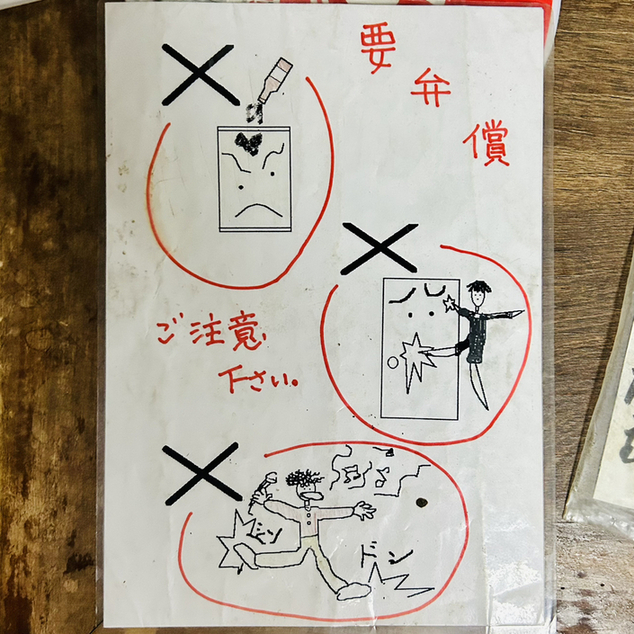 要弁償
ご注意
下さい。
ドン
ドン